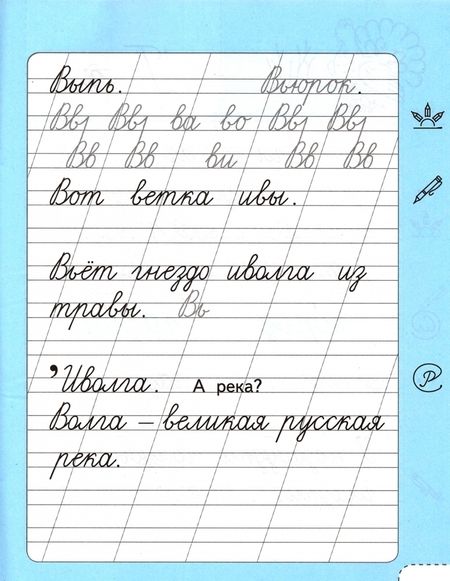 Выпь. Вьюрок.
Вв Вв ва во Вв Вв
Вв Вв ви Вв Вв
Вот ветка ивы.
Вьёт гнездо иволга из
травы. Вь
’Иволга. А река?
Р
Волга – великая русская
река.